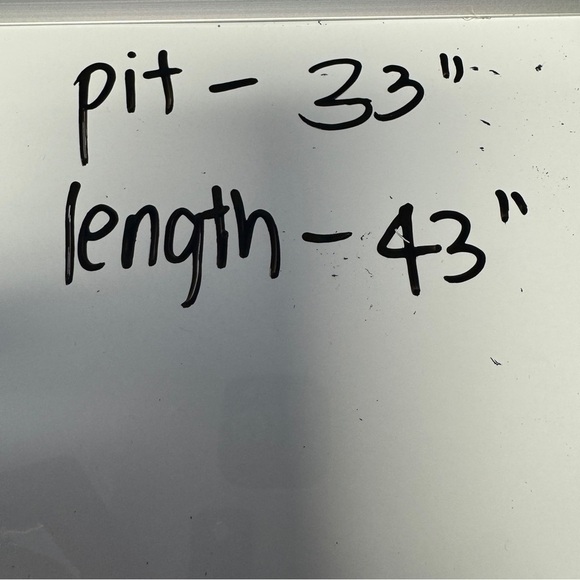 pit - 33"
length - 43"